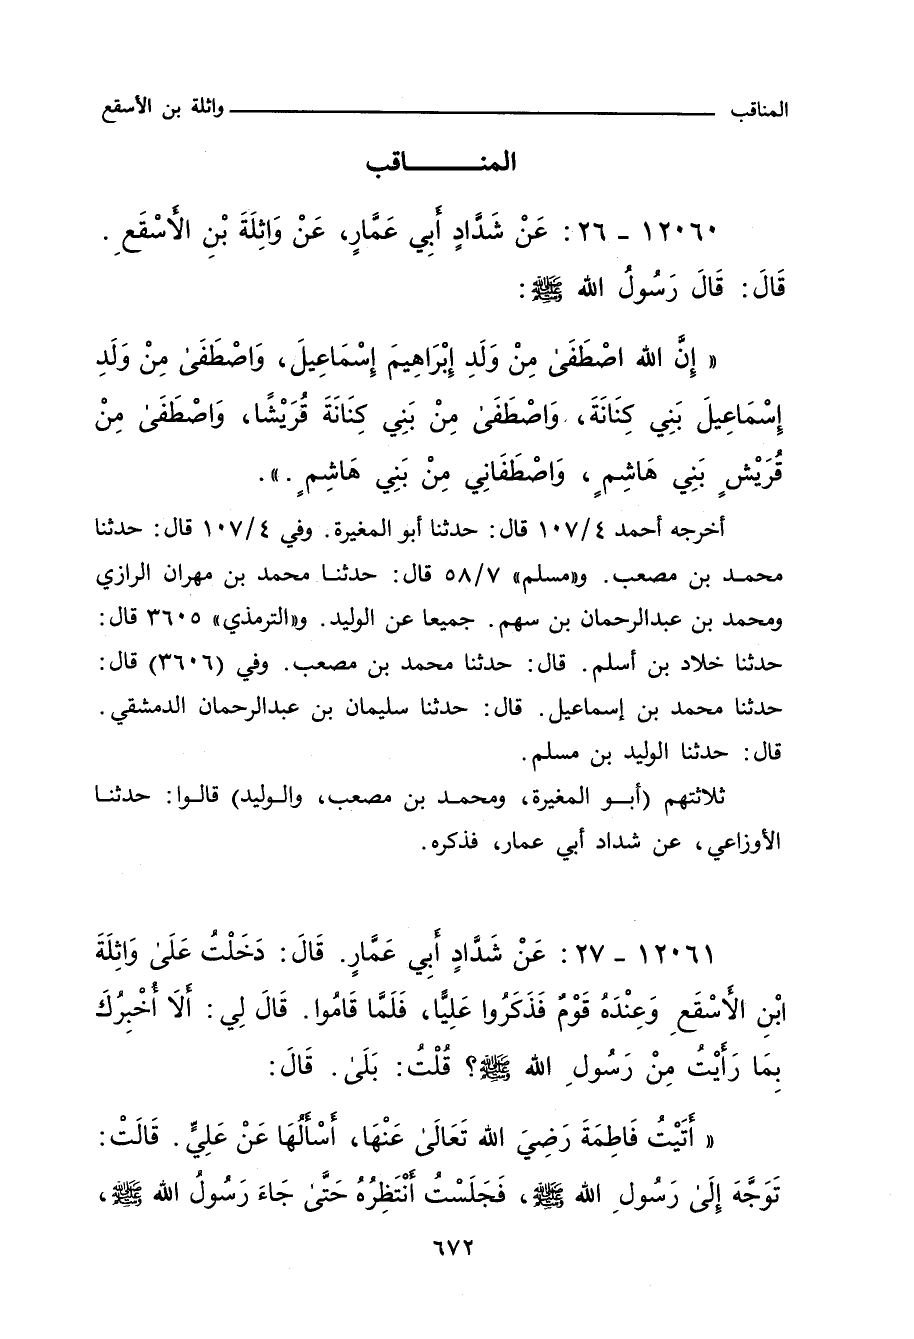 المناقب ـــــــــ واثلة بن الأسقع
المنـــــاقب
١٢٠٦٠ - ٢٦ : عَنْ شَدَّادٍ أَبِي عَمَّارٍ، عَنْ وَاثِلَةَ بْنِ الأَسْقَعِ .
قَالَ: قَالَ رَسُولُ الله ﷺ:
« إِنَّ الله اصْطَفَىٰ مِنْ وَلَدِ إِبْرَاهِيمَ إِسْمَاعِيلَ، وَاصْطَفَىٰ مِنْ وَلَدِ
إِسْمَاعِيلَ بَنِي كِنَانَةَ، وَاصْطَفَىٰ مِنْ بَنِي كِنَانَةَ قُرَيْشًا، وَاصْطَفَىٰ مِنْ
قُرَيْشٍ بَنِي هَاشِمٍ، وَاصْطَفَانِي مِنْ بَنِي هَاشِمٍ.».
أخرجه أحمد ١٠٧/٤ قال: حدثنا أبو المغيرة. وفي ١٠٧/٤ قال: حدثنا
محمـد بن مصعب. و«مسلم» ٥٨/٧ قال: حدثنـا محمد بن مهران الرازي
ومحمد بن عبدالرحمان بن سهم. جميعا عن الوليد. و«الترمذي» ٣٦٠٥ قال:
حدثنا خلاد بن أسلم. قال: حدثنا محمد بن مصعب. وفي (٣٦٠٦) قال:
حدثنا محمد بن إسماعيل. قال: حدثنا سليمان بن عبدالرحمان الدمشقي.
قال: حدثنا الوليد بن مسلم.
ثلاثتهم (أبـو المغيرة، ومحمـد بن مصعب، والـوليد) قالـوا: حدثنـا
الأوزاعي، عن شداد أبي عمار، فذكره.
١٢٠٦١ - ٢٧ : عَنْ شَدَّادٍ أَبِي عَمَّارٍ. قَالَ: دَخَلْتُ عَلَىٰ وَاثِلَةَ
ابْنِ الأَسْقَعِ وَعِنْدَهُ قَوْمٌ فَذَكَرُوا عَلِيًّا، فَلَمَّا قَامُوا. قَالَ لِي: أَلَا أُخْبِرُكَ
بِمَا رَأَيْتُ مِنْ رَسُولِ الله ﷺ؟ قُلْتُ: بَلَىٰ. قَالَ:
« أَتَيْتُ فَاطِمَةَ رَضِيَ الله تَعَالَىٰ عَنْهَا، أَسْأَلُهَا عَنْ عَلِيٍّ. قَالَتْ:
تَوَجَّهَ إِلَىٰ رَسُولِ الله ﷺ، فَجَلَسْتُ أَنْتَظِرُهُ حَتَّىٰ جَاءَ رَسُولُ الله ﷺ،
٦٧٢